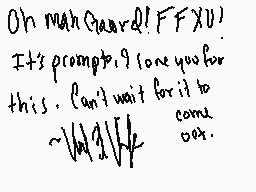 Oh mah Gaard! FFXV!
It's prompto. I love you for
this. Can't wait for it to
come
out.